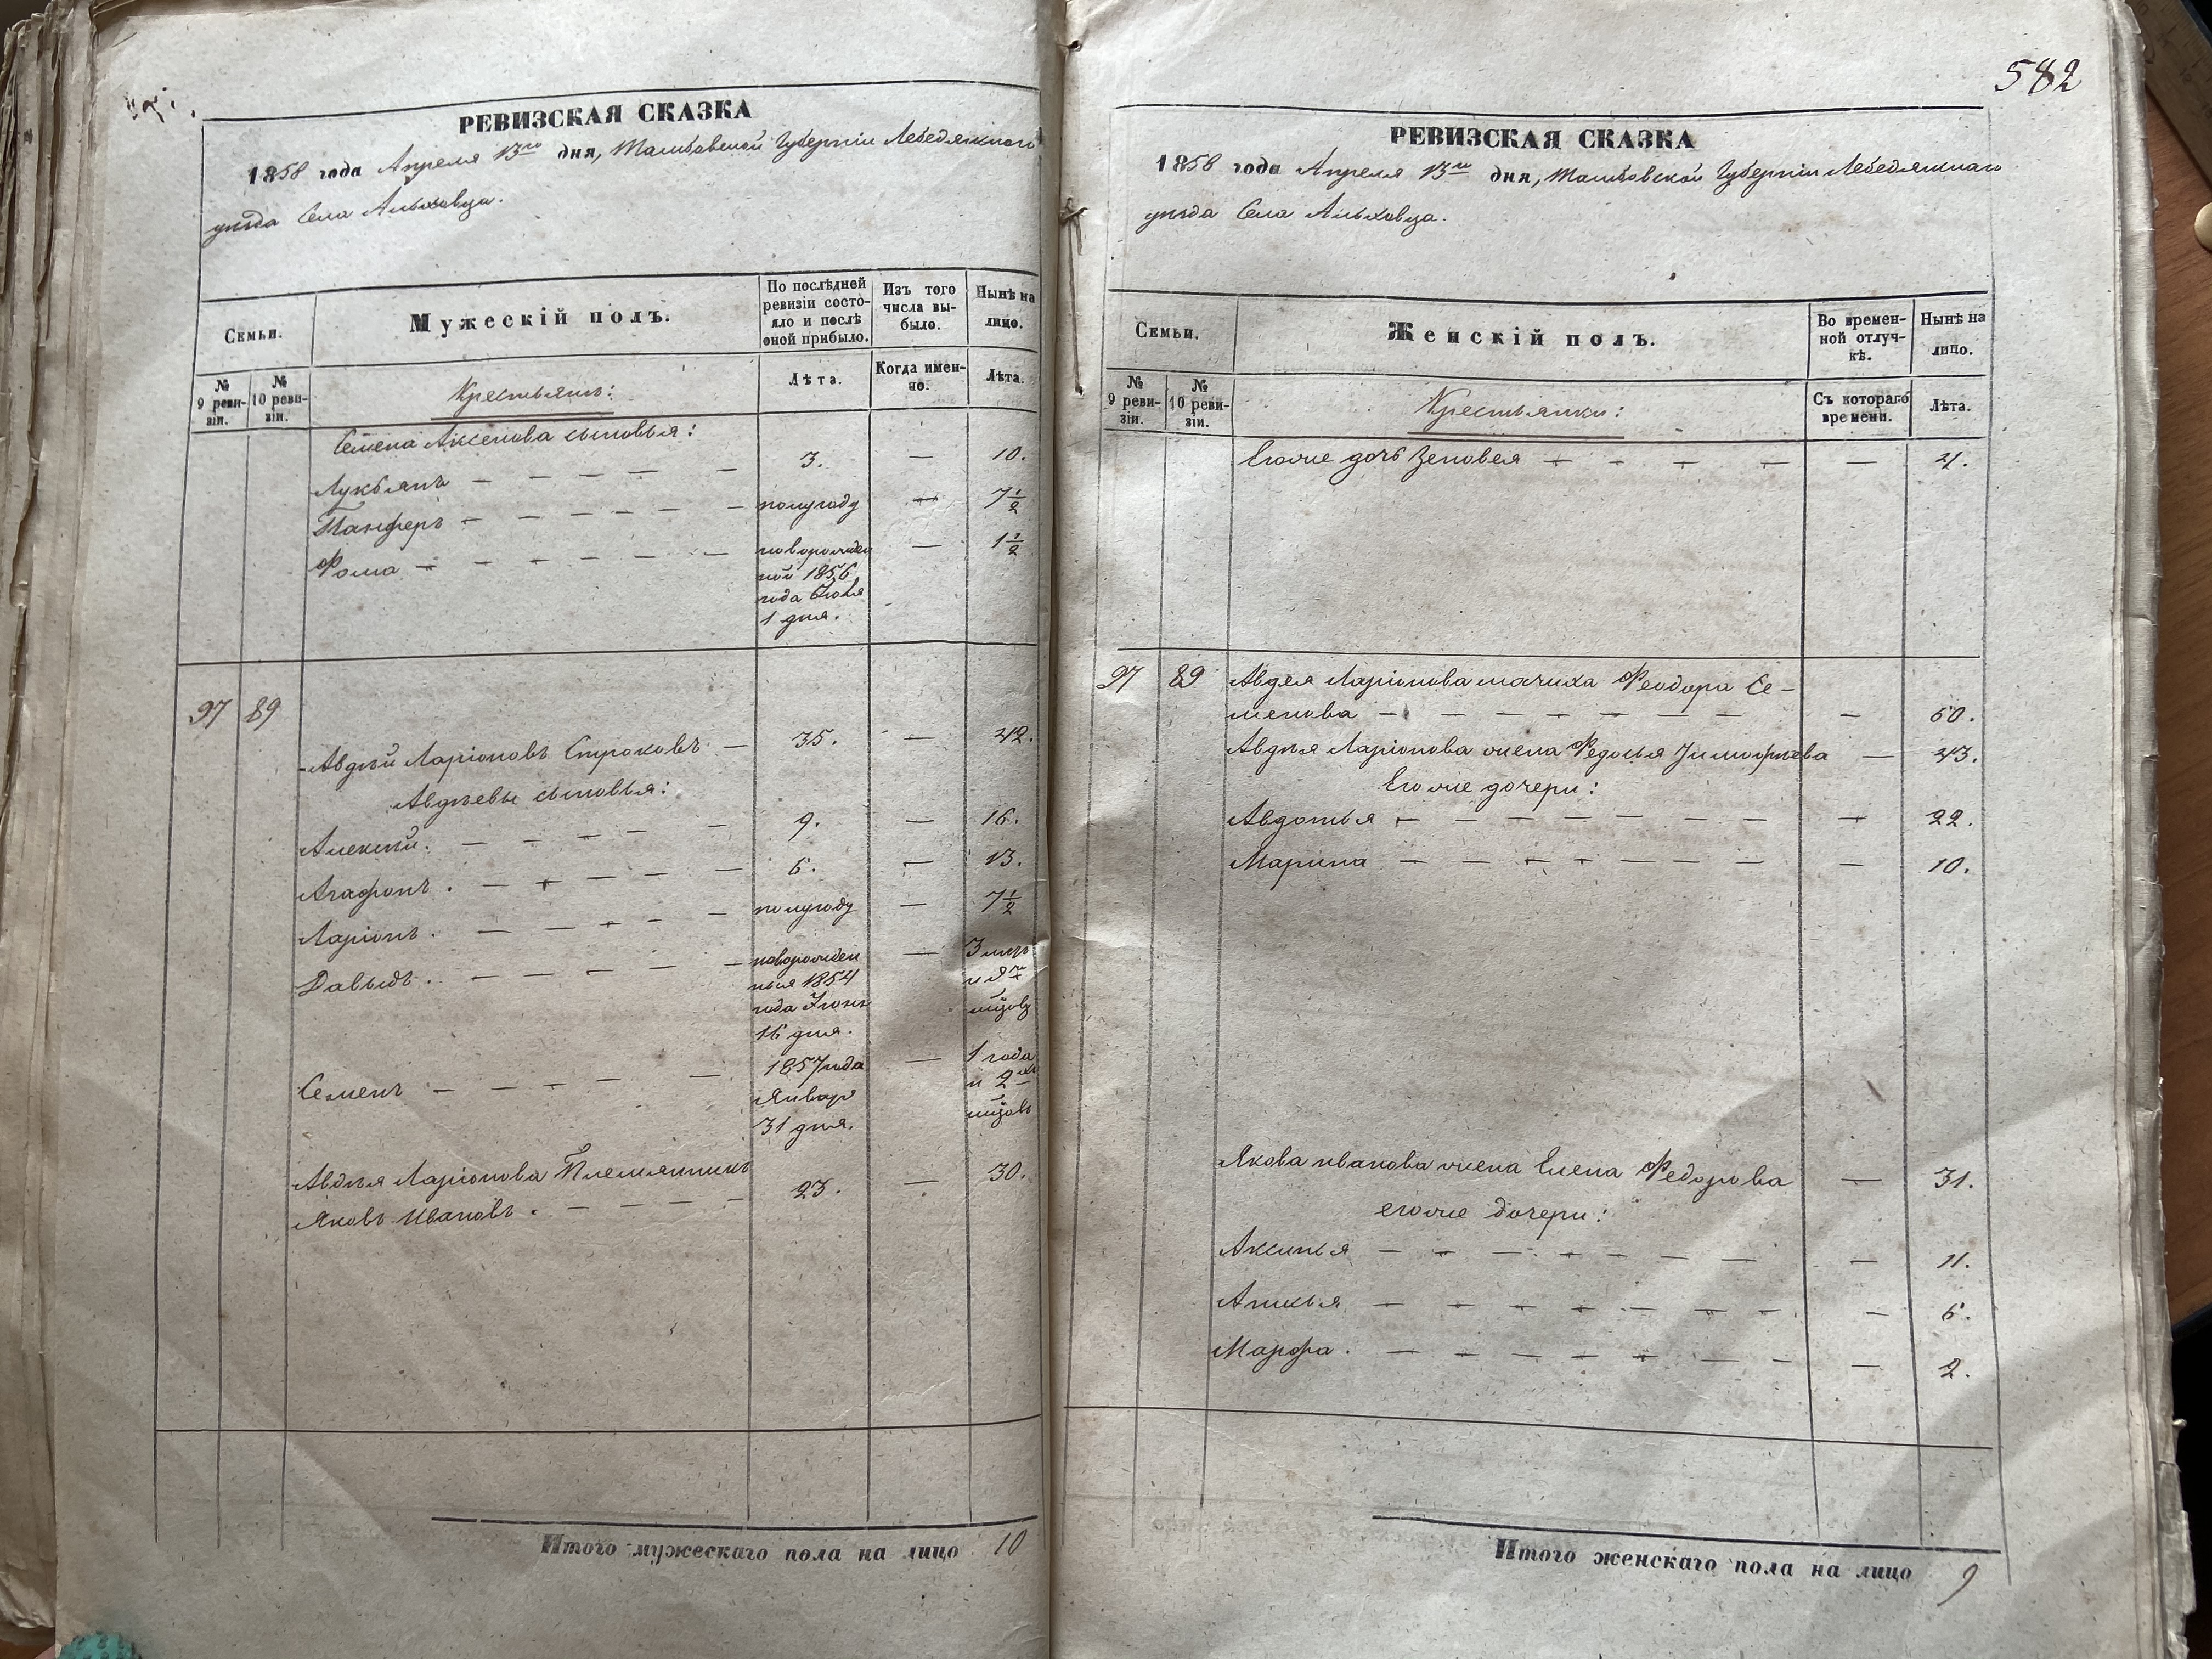 РЕВИЗСКАЯ СКАЗКА
1858 года Апреля 13го дня, Тамбовской Губерніи Лебедянскаго
уѣзда Села Альховца.
Семьи.
Мужескій полъ.
По послѣдней ревизіи состояло и послѣ оной прибыло.
Изъ того числа выбыло.
Нынѣ на лицо.
№ 9 ревизіи.
№ 10 ревизіи.
Крестьянъ:
Лѣта.
Когда именно.
Лѣта.
Семена Аксенова сыновья:
Лукьянъ — — — — — 3. — 10.
Панферъ — — — — — полугоду — 7 1/2
Фома — — — — — новорожден — 1 1/2
ной 1856
года Іюля
1 дня.
97 89
Авдѣй Ларіоновъ Строковъ — 35. — 42.
Авдѣевы сыновья:
Алексѣй. — — — — 9. — 16.
Агафонъ. — — — — — 6. — 13.
Ларіонъ. — — — — — полугоду — 7 1/2
Давыдъ. — — — — — новорожден — 3 лѣтъ
ныя 1854 и 9ти
года Іюня мцовъ
16 дня.
Семенъ — — — — — 1857 года — 1 года
Января и 2хъ
31 дня. мцовъ
Авдѣя Ларіонова Племянникъ
Яковъ Ивановъ. — — — — 23. — 30.
Итого мужескаго пола на лицо 10
582
РЕВИЗСКАЯ СКАЗКА
1858 года Апреля 13го дня, Тамбовской Губерніи Лебедянскаго
уѣзда Села Альховца.
Семьи.
Женскій полъ.
Во временной отлучкѣ.
Нынѣ на лицо.
№ 9 ревизіи.
№ 10 ревизіи.
Крестьянки:
Съ котораго времени.
Лѣта.
Егоже дочь Зеновея — — — — — — 4.
97 89 Авдея Ларіонова мачиха Феодора Се-
менова — — — — — — — — 60.
Авдѣя Ларіонова жена Федосья Тимофѣева — 43.
Егоже дочери:
Авдотья — — — — — — — — 22.
Марина — — — — — — — — 10.
Якова иванова жена Елена Федорова — 31.
егоже дочери:
Аксинья — — — — — — — — 11.
Анисья — — — — — — — — 6.
Марфа. — — — — — — — — 2.
Итого женскаго пола на лицо 9